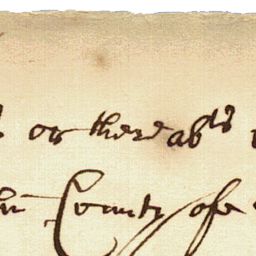 or thereabts
County of